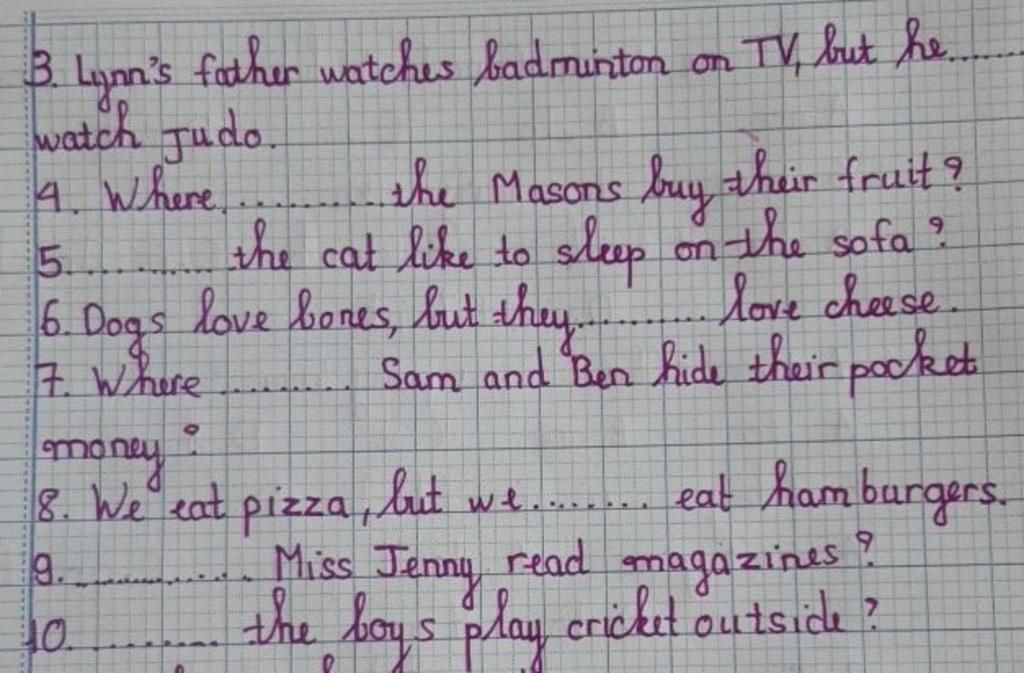 3. Lynn's father watches badminton on TV, but he.......
watch Judo.
4. Where ........... the Masons buy their fruit?
5........... the cat like to sleep on the sofa?
6. Dogs love bones, but they.......... love cheese.
7. Where .......... Sam and Ben hide their pocket
money?
8. We eat pizza, but we......... eat hamburgers.
9. .............. Miss Jenny read magazines?
10. .......... the boys play cricket outside?